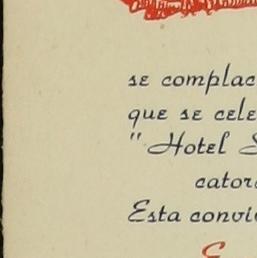 se complac
que se cele
"Hotel S
cator
Esta convi